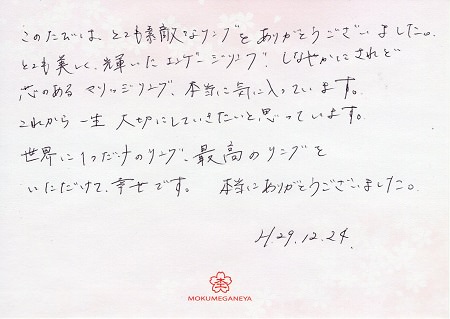 このたびは、とても素敵なリングをありがとうございました。
とても美しく、輝いたエンゲージリング、しなやかにされど
芯のあるマリッジリング、本当に気に入っています。
これから一生大切にしていきたいと思っています。
世界に1つだけのリング、最高のリングを
いただけて、幸せです。 本当にありがとうございました。
H29.12.24.
MOKUMEGANEYA